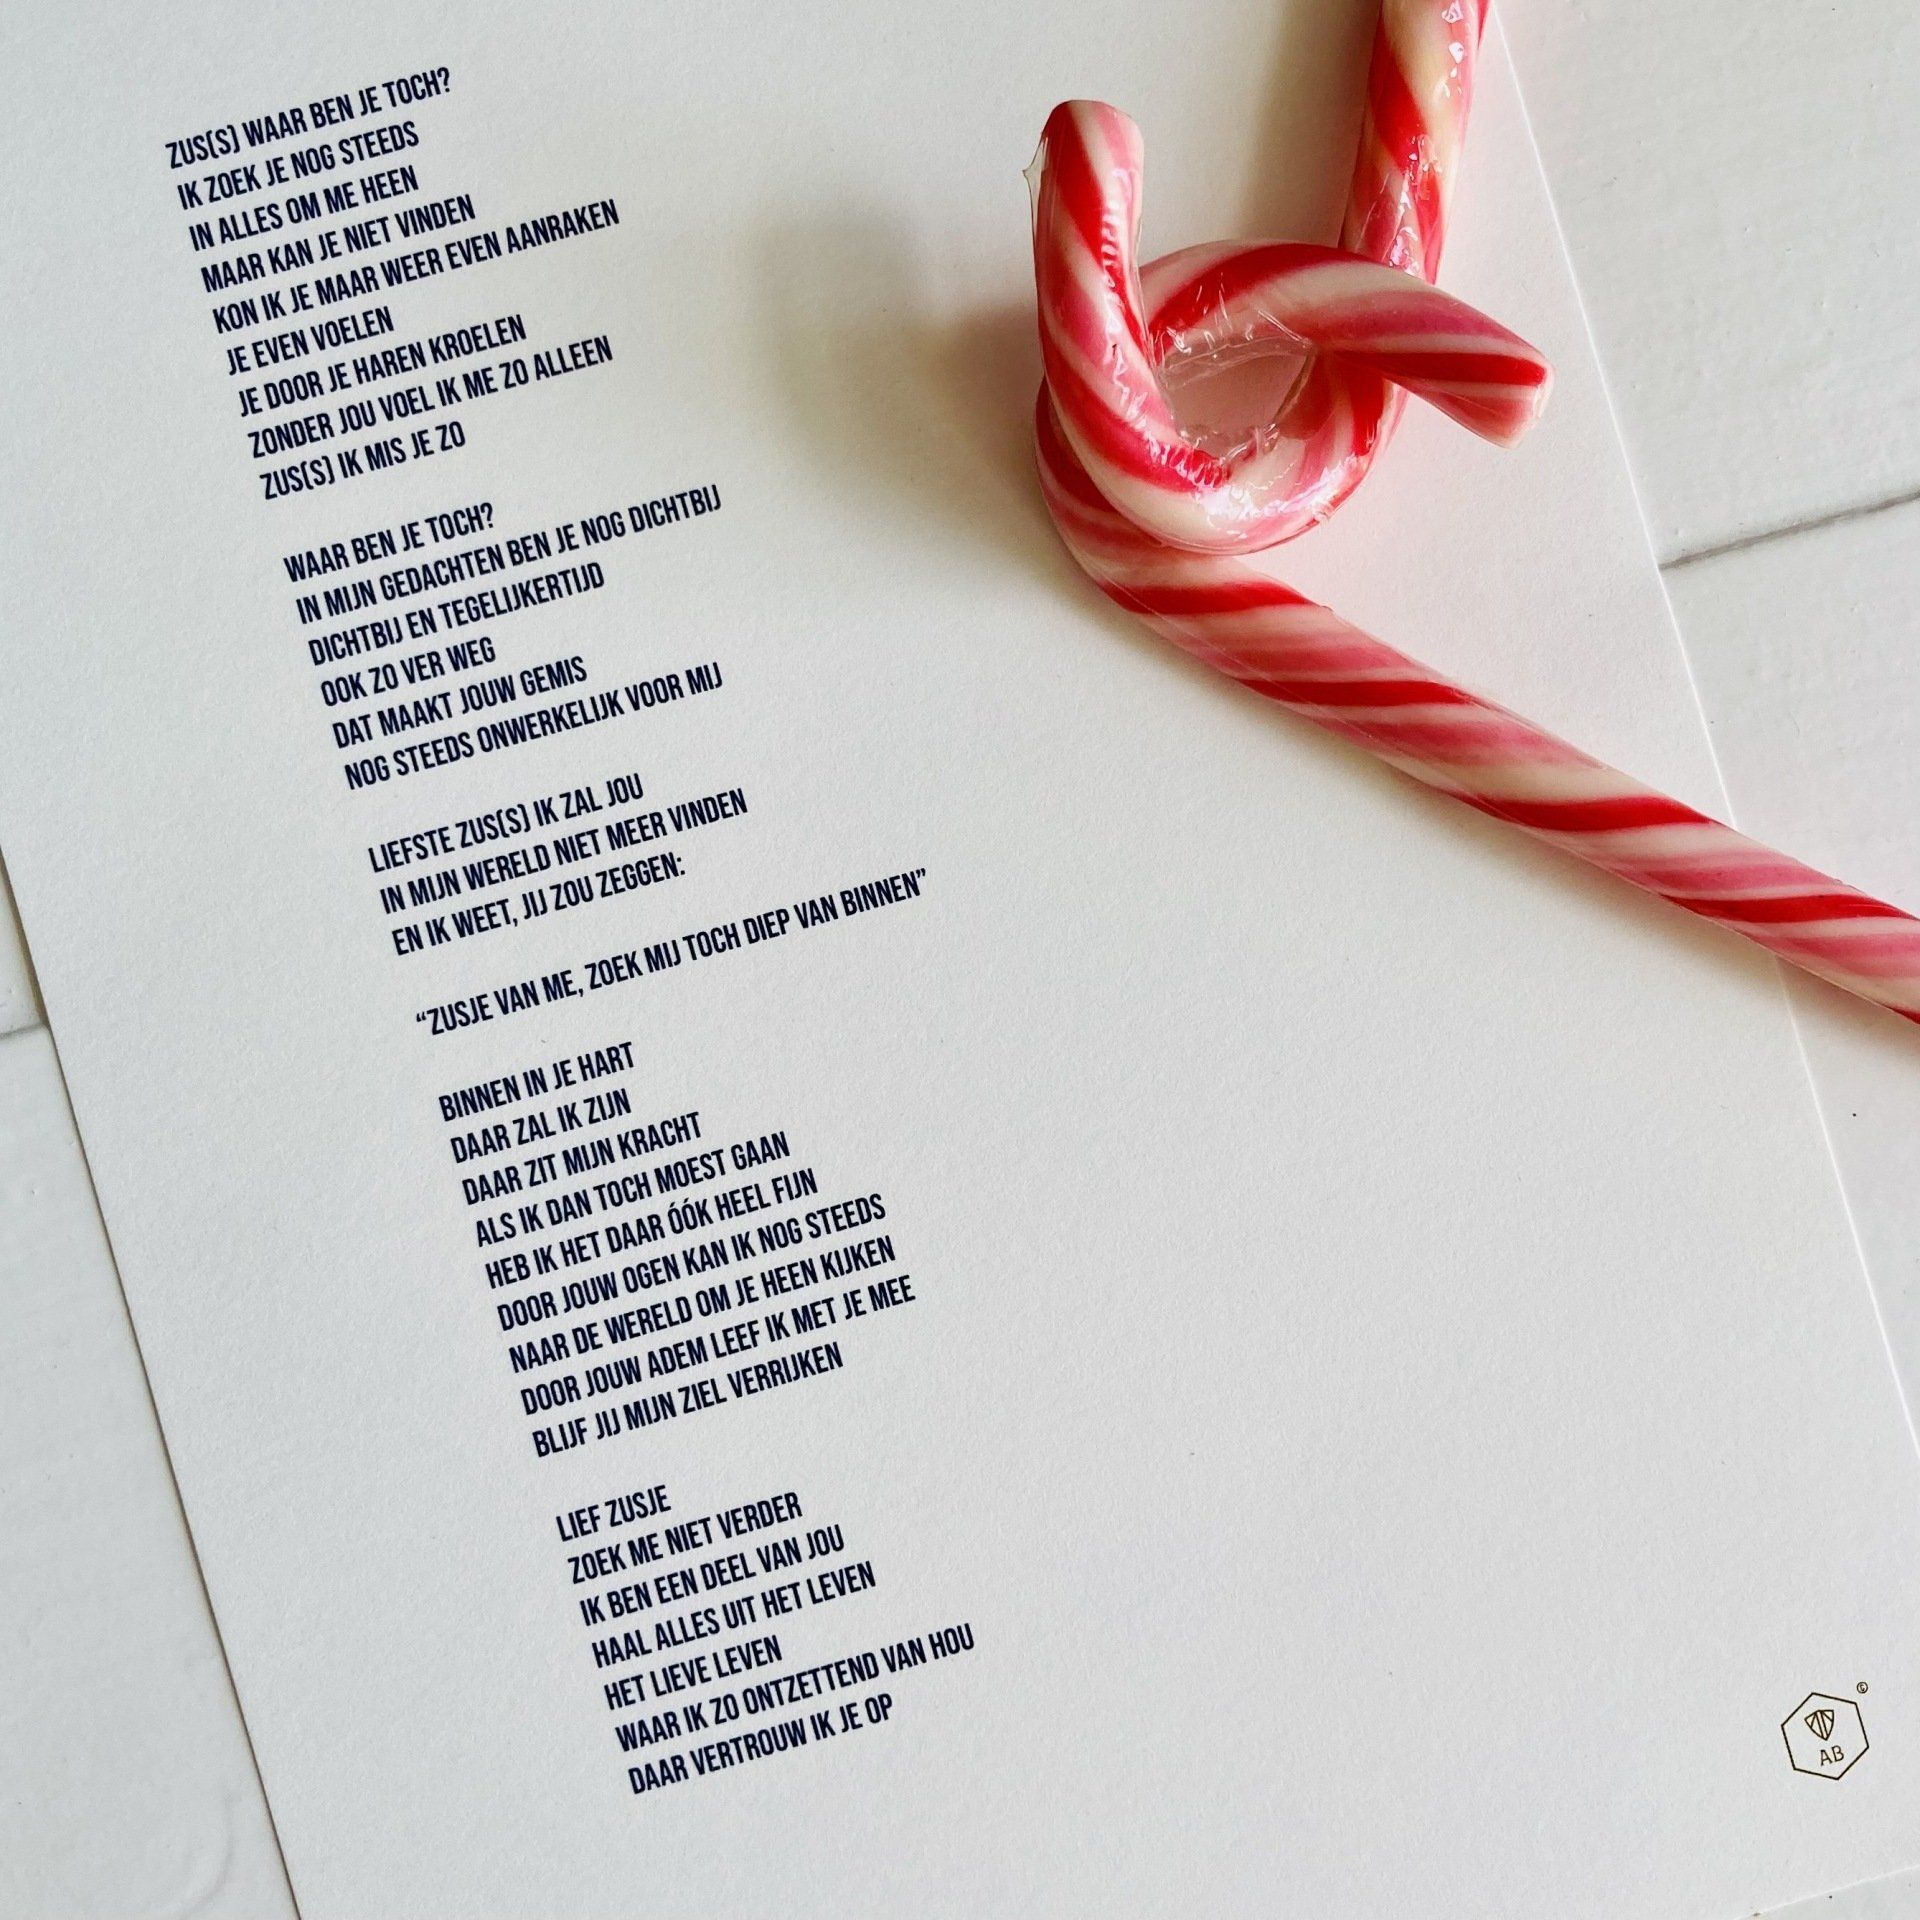 ZUS(S) WAAR BEN JE TOCH?
IK ZOEK JE NOG STEEDS
IN ALLES OM ME HEEN
MAAR KAN JE NIET VINDEN
KON IK JE MAAR WEER EVEN AANRAKEN
JE EVEN VOELEN
JE DOOR JE HAREN KROELEN
ZONDER JOU VOEL IK ME ZO ALLEEN
ZUS(S) IK MIS JE ZO
WAAR BEN JE TOCH?
IN MIJN GEDACHTEN BEN JE NOG DICHTBIJ
DICHTBIJ EN TEGELIJKERTIJD
OOK ZO VER WEG
DAT MAAKT JOUW GEMIS
NOG STEEDS ONWERKELIJK VOOR MIJ
LIEFSTE ZUS(S) IK ZAL JOU
IN MIJN WERELD NIET MEER VINDEN
EN IK WEET, JIJ ZOU ZEGGEN:
“ZUSJE VAN ME, ZOEK MIJ TOCH DIEP VAN BINNEN”
BINNEN IN JE HART
DAAR ZAL IK ZIJN
DAAR ZIT MIJN KRACHT
ALS IK DAN TOCH MOEST GAAN
HEB IK HET DAAR ÓÓK HEEL FIJN
DOOR JOUW OGEN KAN IK NOG STEEDS
NAAR DE WERELD OM JE HEEN KIJKEN
DOOR JOUW ADEM LEEF IK MET JE MEE
BLIJF JIJ MIJN ZIEL VERRIJKEN
LIEF ZUSJE
ZOEK ME NIET VERDER
IK BEN EEN DEEL VAN JOU
HAAL ALLES UIT HET LEVEN
HET LIEVE LEVEN
WAAR IK ZO ONTZETTEND VAN HOU
DAAR VERTROUW IK JE OP
©
AB